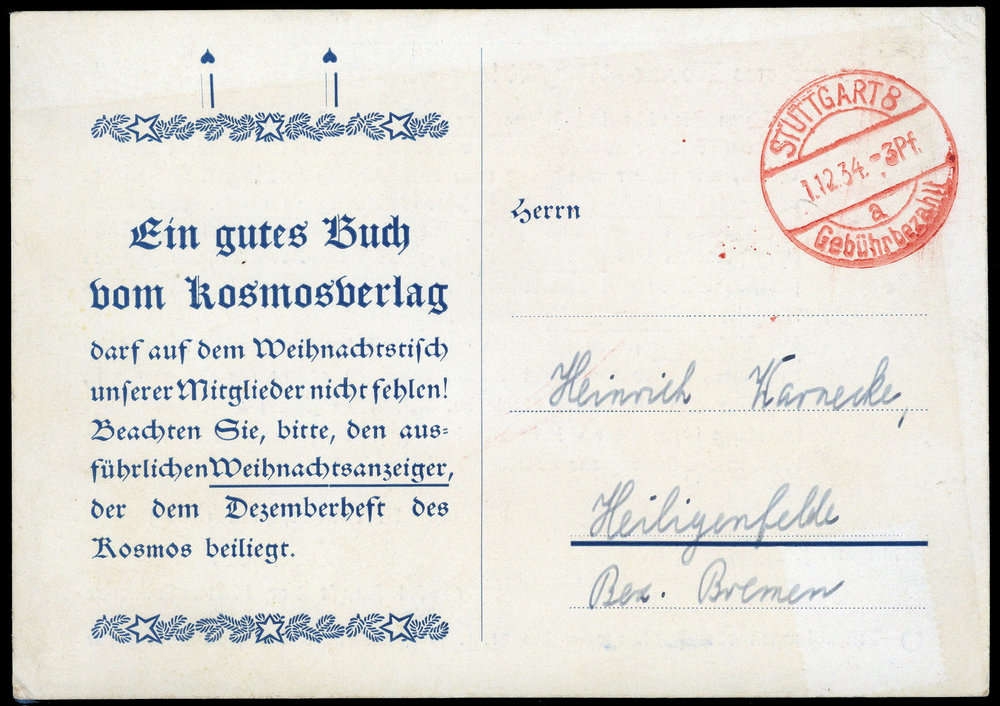 Ein gutes Buch
vom Kosmosverlag
darf auf dem Weihnachtstisch
unserer Mitglieder nicht fehlen!
Beachten Sie, bitte, den aus=
führlichen Weihnachtsanzeiger,
der dem Dezemberheft des
Kosmos beiliegt.
STUTTGART 8
1.12.34.-3Pf.
a
Gebührbezahlt
Herrn
Heinrich Warnecke,
Heiligenfelde
Bez. Bremen